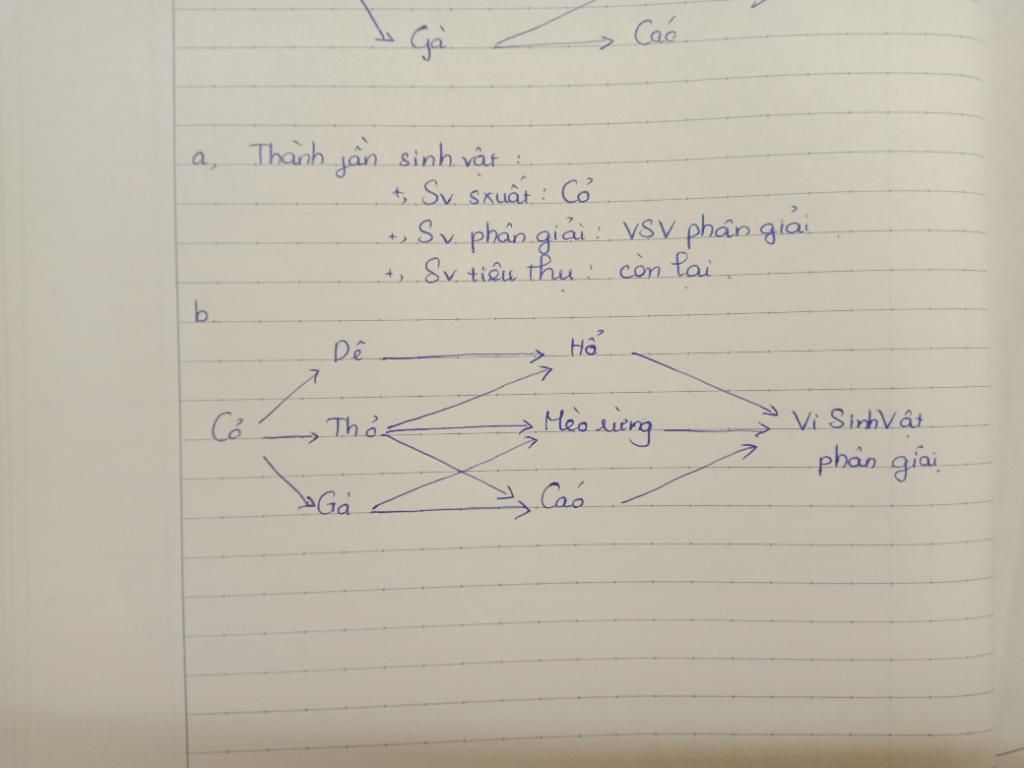 Gà Caó
a, Thành fần sinh vật :
+, Sv sxuất : Cỏ
+, Sv phân giải : VSV phân giải
+, Sv tiêu thụ : còn lại.
b.
Dê Hổ
Cỏ Thỏ Mèo rừng Vi Sinh Vật
phân giải
Gà Caó